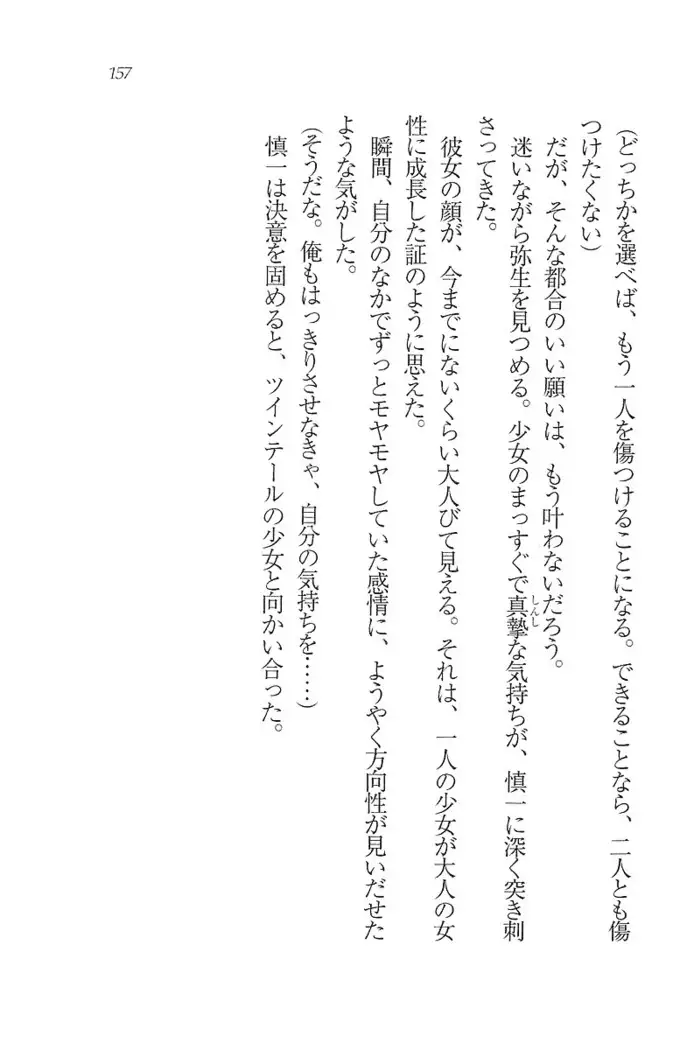 157
(どっちかを選べば、もう一人を傷つけることになる。できることなら、二人とも傷
つけたくない)
だが、そんな都合のいい願いは、もう叶わないだろう。
迷いながら弥生を見つめる。少女のまっすぐで真摯な気持ちが、慎一に深く突き刺
しんし
さってきた。
彼女の顔が、今までにないくらい大人びて見える。それは、一人の少女が大人の女
性に成長した証のように思えた。
瞬間、自分のなかでずっとモヤモヤしていた感情に、ようやく方向性が見いだせた
ような気がした。
(そうだな。俺もはっきりさせなきゃ、自分の気持ちを……)
慎一は決意を固めると、ツインテールの少女と向かい合った。